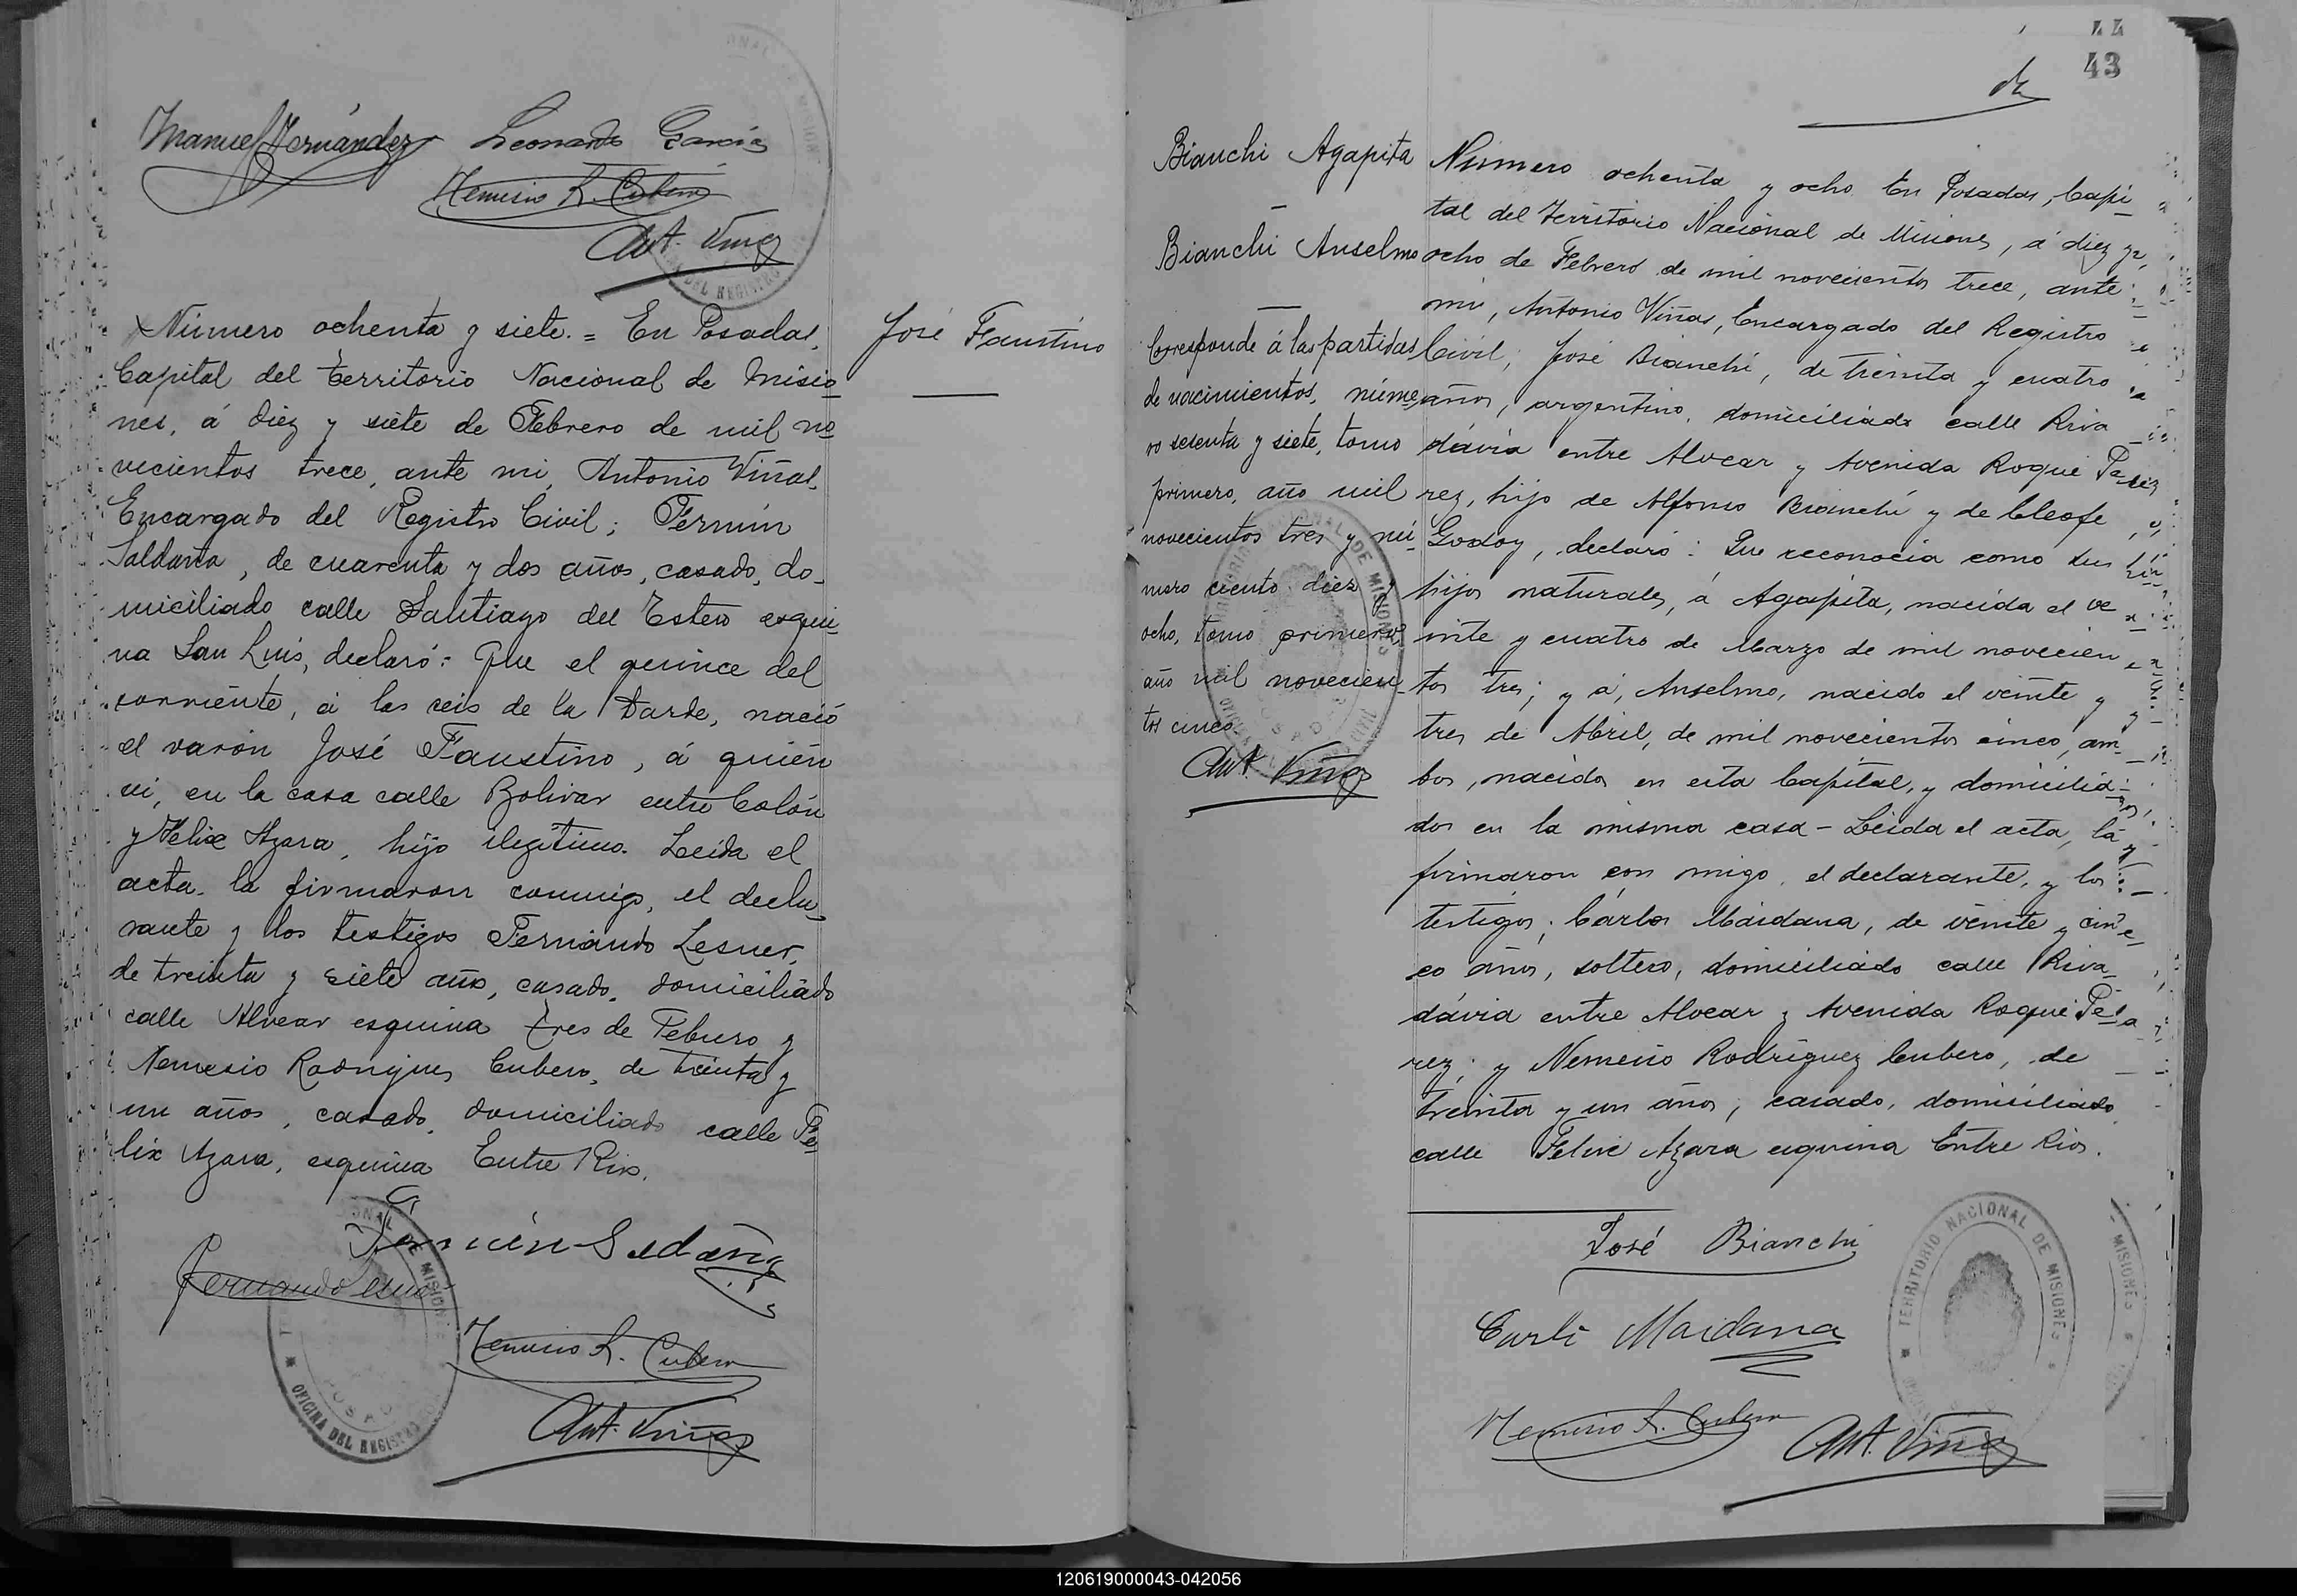 Manuel Fernández Leonardo García
Nemesio R. Cubero
Ant. Viñas
Número ochenta y siete. = En Posadas,
Capital del territorio Nacional de Misio-
nes, á diez y siete de Febrero de mil no-
vecientos trece, ante mi, Antonio Viñas,
Encargado del Registro Civil; Fermín
Saldaña, de cuarenta y dos años, casado, do-
miciliado calle Santiago del Estero esqui-
na San Luis, declaró: Que el quince del
corriente, á las seis de la tarde, nació
el varón José Faustino, á quién
vi, en la casa calle Bolivar entre Colón
y Felix Azara, hijo ilegítimo. Leida el
acta, la firmaron conmigo, el decla-
rante y los testigos Fernando Lesner,
de treinta y siete años, casado, domiciliado
calle Alvear esquina tres de Febrero y
Nemesio Rodriguez Cubero, de treinta y
un años, casado, domiciliado calle Fe-
lix Azara, esquina Entre Rios.
José Faustino
Fermín Sadaña
Fernando Lesner
Nemesio R. Cubero
Ant. Viñas
OFICINA DEL REGISTRO
44
43
Bianchi Agapita
Bianchi Anselmo
Corresponde á las partidas
de nacimientos, núme-
ro sesenta y siete, tomo
primero, año mil
novecientos tres y nú-
mero ciento diez y
ocho, tomo primero,
año mil novecien-
tos cinco
Ant Viñas
Número ochenta y ocho En Posadas, Capi-
tal del Territorio Nacional de Misiones, á diez y
ocho de Febrero de mil novecientos trece, ante
mi, Antonio Viñas, Encargado del Registro
Civil; José Bianchi, de treinta y cuatro
años, argentino, domiciliado calle Riva
davia entre Alvear y Avenida Roque Pe-
rez, hijo de Alfonso Bianchi y de Cleofe
Godoy, declaró: Que reconocia como sus
hijos naturales, á Agapita, nacida el ve
inte y cuatro de Marzo de mil novecien
tos tres; y á, Anselmo, nacido el veinte y
tres de Abril, de mil novecientos cinco, am-
bos, nacidos en esta Capital, y domicilia-
dos en la misma casa - Leida el acta, la
firmaron con migo, el declarante, y los
testigos; Cárlos Maidana, de veinte y cin-
co años, soltero, domiciliado calle Riva-
dávia entre Alvear y Avenida Roque Pe-
rez; y Nemesio Rodríguez Cubero, de
treinta y un años, casado, domiciliado
calle Felix Azara esquina Entre Rios.
José Bianchi
Carlos Maidana
Nemesio R. Cubero
Ant. Viñas
TERRITORIO NACIONAL DE MISIONES
120619000043-042056